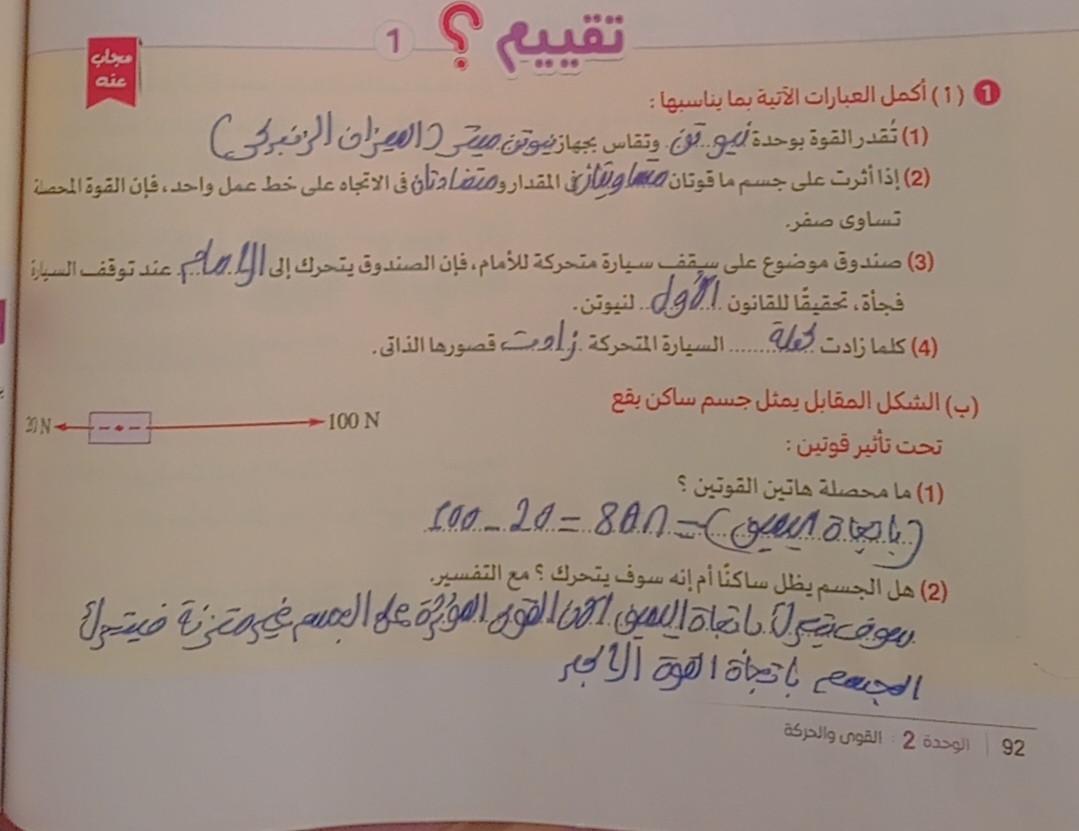 تقييم ؟ 1
مجاب
عنه
1 (أ) أكمل العبارات الآتية بما يناسبها :
(1) تُقدر القوة بوحدة نيوتن وتقاس بجهاز نيوتن ميتر (الميزان الزنبركي)
(2) إذا أثرت على جسم ما قوتان متساويتان فى المقدار و متضادتان فى الاتجاه على خط عمل واحد، فإن القوة المحصلة
تساوى صفر.
(3) صندوق موضوع على سقف سيارة متحركة للأمام، فإن الصندوق يتحرك إلى الامام عند توقف السيارة
فجأة، تحقيقًا للقانون الأول لنيوتن.
(4) كلما زادت كتلة السيارة المتحركة زادت قصورها الذاتى.
(ب) الشكل المقابل يمثل جسم ساكن يقع
20 N 100 N
تحت تأثير قوتين :
(1) ما محصلة هاتين القوتين ؟
100 - 20 = 80 n = (باتجاة اليمين)
(2) هل الجسم يظل ساكنًا أم إنه سوف يتحرك ؟ مع التفسير.
سوف يتحرك باتجاة اليمين لأن القوى المؤثرة على الجسم غير متزنة فيتحرك
الجسم باتجاة القوة الأكبر
92 | الوحدة 2 : القوى والحركة